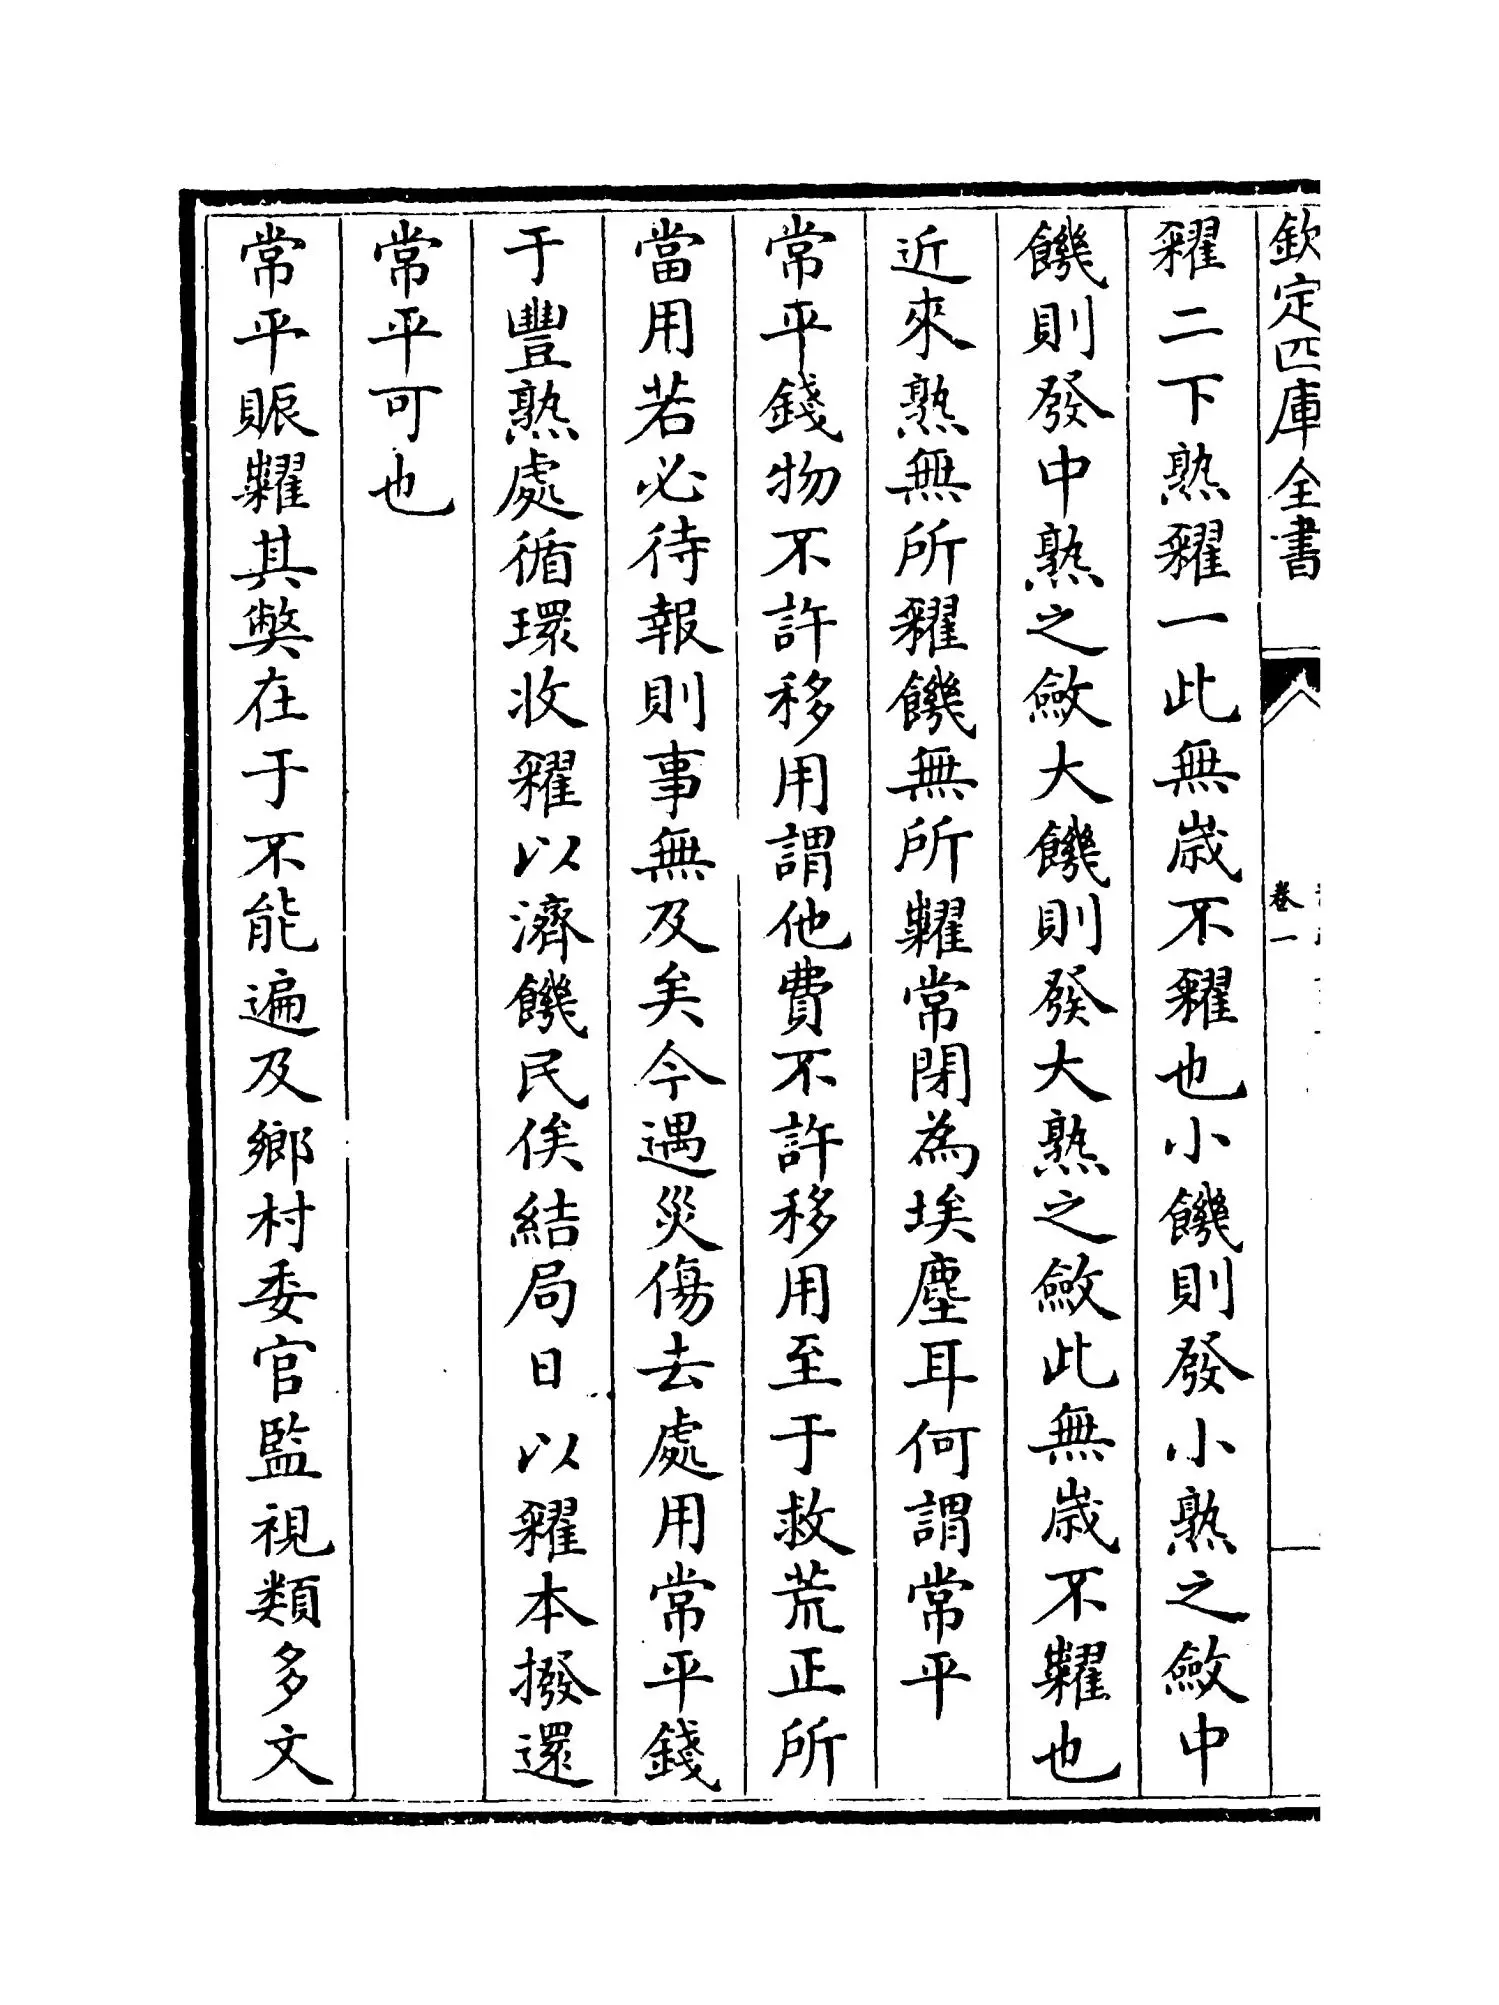 欽定四庫全書
卷一
糴二下熟糴一此無歳不糴也小饑則發小熟之斂中
饑則發中熟之斂大饑則發大熟之斂此無歳不糶也
近來熟無所糴饑無所糶常閉為埃塵耳何謂常平
常平錢物不許移用謂他費不許移用至于救荒正所
當用若必待報則事無及矣今遇災傷去處用常平錢
于豐熟處循環收糴以濟饑民俟結局日以糴本撥還
常平可也
常平賑糶其弊在于不能遍及鄉村委官監視類多文